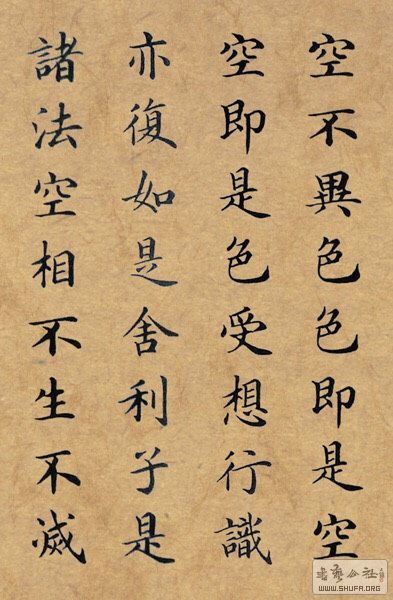 空不異色色即是空
空即是色受想行識
亦復如是舍利子是
諸法空相不生不滅
WWW.SHUFA.ORG